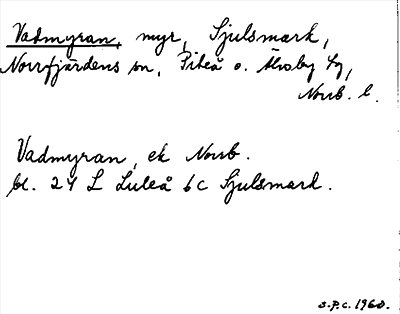 Vadmyran, myr, Sjulsmark,
Norrfjärdens sn, Piteå o. Älvsby tg,
Norrb. l.
Vadmyran, ek Norrb.
bl. 24 L Luleå 6c Sjulsmark.
S.P.C. 1960.